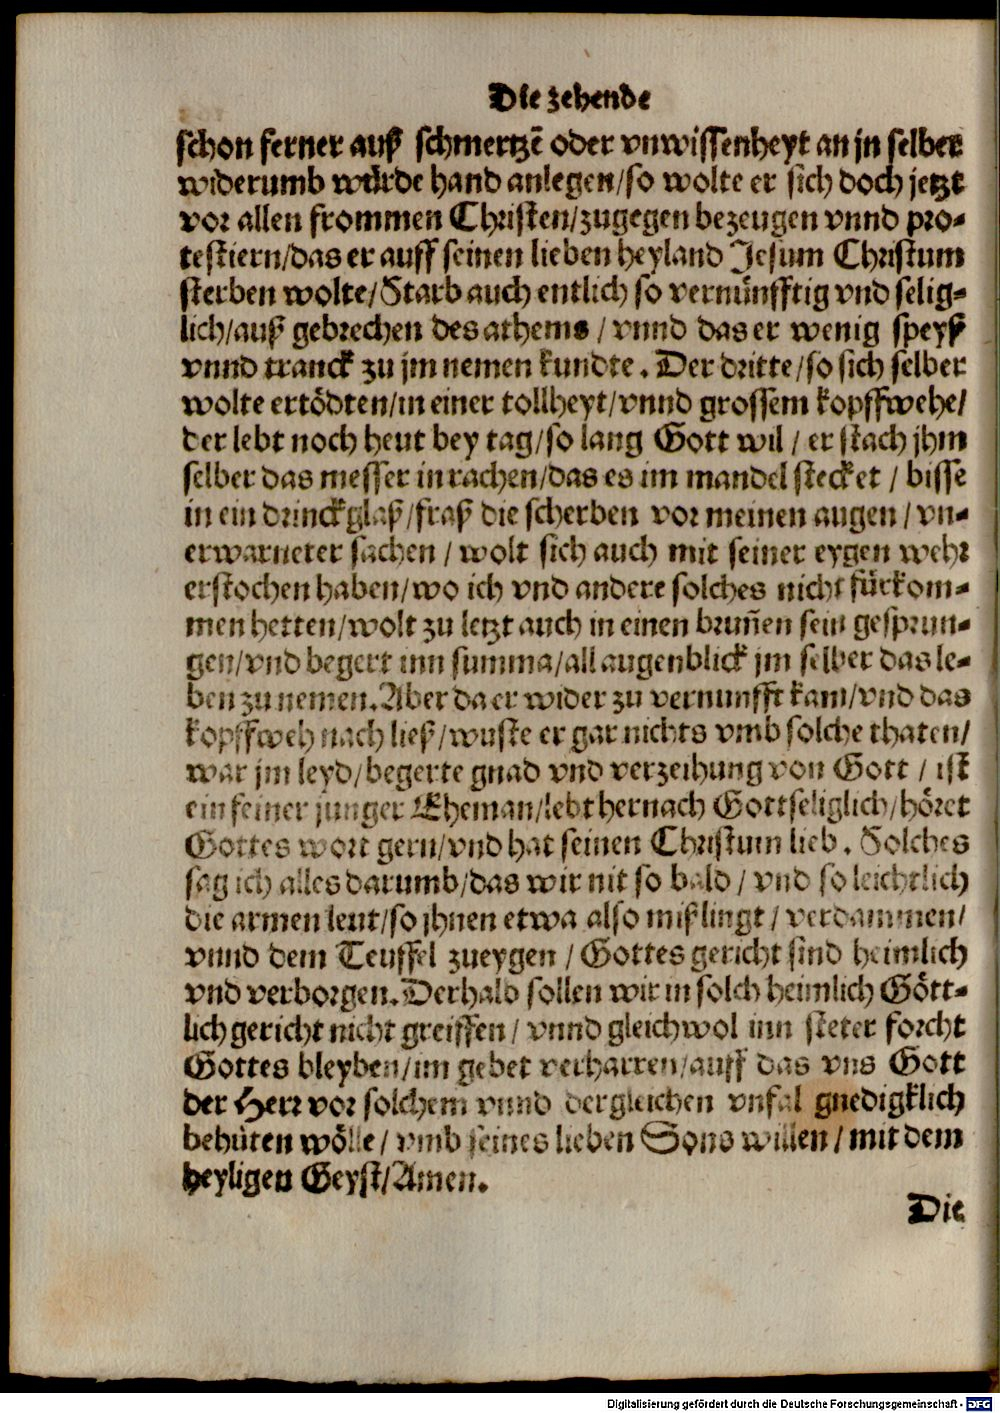 Die zehende
schon ferner auß schmertzē oder vnwissenheyt an jn selber
widerumb würde hand anlegen/so wolte er sich doch jetzt
vor allen frommen Christen/zugegen bezeugen vnnd pro-
testiern/das er auff seinen lieben heyland Jesum Christum
sterben wolte/Starb auch entlich so vernünfftig vnd selig-
lich/auß gebrechen des athems / vnnd das er wenig speyß
vnnd tranck zu jm nemen kundte. Der dritte/so sich selber
wolte ertödten/in einer tollheyt/vnnd grossem kopffwehe/
der lebt noch heut bey tag/so lang Gott wil / er stach jhm
selber das messer in rachen/das es im mandel stecket / bisse
in ein drinckglaß/fraß die scherben vor meinen augen / vn-
erwarneter sachen / wolt sich auch mit seiner eygen wehr
erstochen haben/wo ich vnd andere solches nicht fürkom-
men hetten/wolt zu letzt auch in einen brun̄en sein gesprun-
gen/vnd begert inn summa/all augenblick jm selber das le-
ben zu nemen. Aber da er wider zu vernunfft kam/vnd das
kopffweh nach ließ/wuste er gar nichts vmb solche thaten/
war jm leyd/begerte gnad vnd verzeihung von Gott / ist
ein feiner junger Eheman/lebt hernach Gottseliglich/höret
Gottes wort gern/vnd hat seinen Christum lieb. Solches
sag ich alles darumb/das wir nit so bald / vnd so leichtlich
die armen leut/so jhnen etwa also mißlingt / verdammen/
vnnd dem Teuffel zueygen / Gottes gericht sind heimlich
vnd verborgen. Derhalb sollen wir in solch heimlich Gött-
lich gericht nicht greiffen / vnnd gleichwol inn steter forcht
Gottes bleyben/im gebet verharren/auff das vns Gott
der Herr vor solchem vnnd dergleichen vnfal gnedigklich
behüten wölle / vmb seines lieben Sons willen / mit dem
heyligen Geyst/Amen.
Die
Digitalisierung gefördert durch die Deutsche Forschungsgemeinschaft - DFG